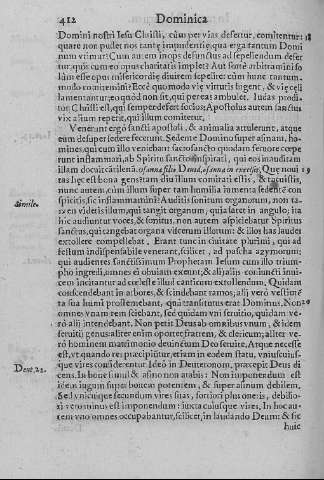 412 Dominica
Domini nostri Iesu Christi, cùm per vias desertur, comitentur: 18
quare non pudet nos tantę ingratitudinis, qua erga tantum Domi
num vtimur? Cum autem inops defunctus ad sepeliendum defer
tur, quis cum eo opus charitatis implet? Aut fortè arbitramini so
lùm esse opus misericordię diuitem sepelire: cùm hunc tantum
modo comitemini? Ecce quo modo vię virtutis lugent, & vię cęli
lamentantur: eo quòd non sit, qui per eas ambulet. Iudas prodi
tur Christi est, qui semper desert socios: Apostolus autem sanctus
vix alium reperit, qui illum comitetur.
Venerunt ergo sancti apostoli, & animalia attulerunt, atque
eum desuper sedere fecerunt. Sedente Domino super asinam, ho-
mines, qui cum illo veniebant sacrosancto quodam feruore cępe
runt inflammari, ab Spiritu sancto inspirati, qui eos inauditam
illam docuit cātilenā. osanna filio Dauid, osanna in excelsis. Que noui 19
tas hęc est bona gens: tam diu illum comitati estis, & tacuistis,
nunc autem, cùm illum super tam humilia iumenta sedentē con
spicitis, sic inflammamini? Auditis sonitum organorum, non ta-
Simile. men videtis illum, qui tangit organum, quia latet in angulo, ita
hic audiuntur voces, & sonitus, non autem aspiciebatur Spiritus
sanctus, qui tangebat organa vocum illorum: & illos has laudes
extollere compellebat. Erant tunc in ciuitate plurimi, qui ad
festum indispensabile venerant, scilicet, ad pascha azymorum:
qui audientes sanctissimum Prophetam Iesum cum illo trium-
pho ingredi, omnes ei obuiàm exeunt, & alij alijs coniuncti inui-
cem incitantur ad cęleste illud canticum extollendum. Quidam
conscendebant in arbores, & scindebant ramos, alij verò vestimē
ta sua humi prosternebant, qui transiturus erat Dominus. Non 20
omnes vnam rem sciebant, sed quidam vni seruitio, quidam ve-
rò alij intendebant. Non petit Deus ab omnibus vnum, & idem
seruitij genus: aliter enim oportet fratrem, & clericum, aliter ve-
rò hominem matrimonio deuinctum Deo seruire. Atque necesse
est, vt quando res pręcipitur, etiam in eodem statu, vniuscuius-
Deut. 22. que vires considerentur. Ideò in Deuteronom. pręcepit Deus di
cens. In boue simul & asino non arabis: Non imponendum est
idem iugum super bouem potentem, & super asinum debilem,
Sed vnicuique secundum vires suas, fortiori plus oneris, debilio-
ri verò minus est imponendum: iuxta cuiusque vires. In hoc au-
tem vno omnes occupabantur, scilicet, in laudando Deum: & sic
huic